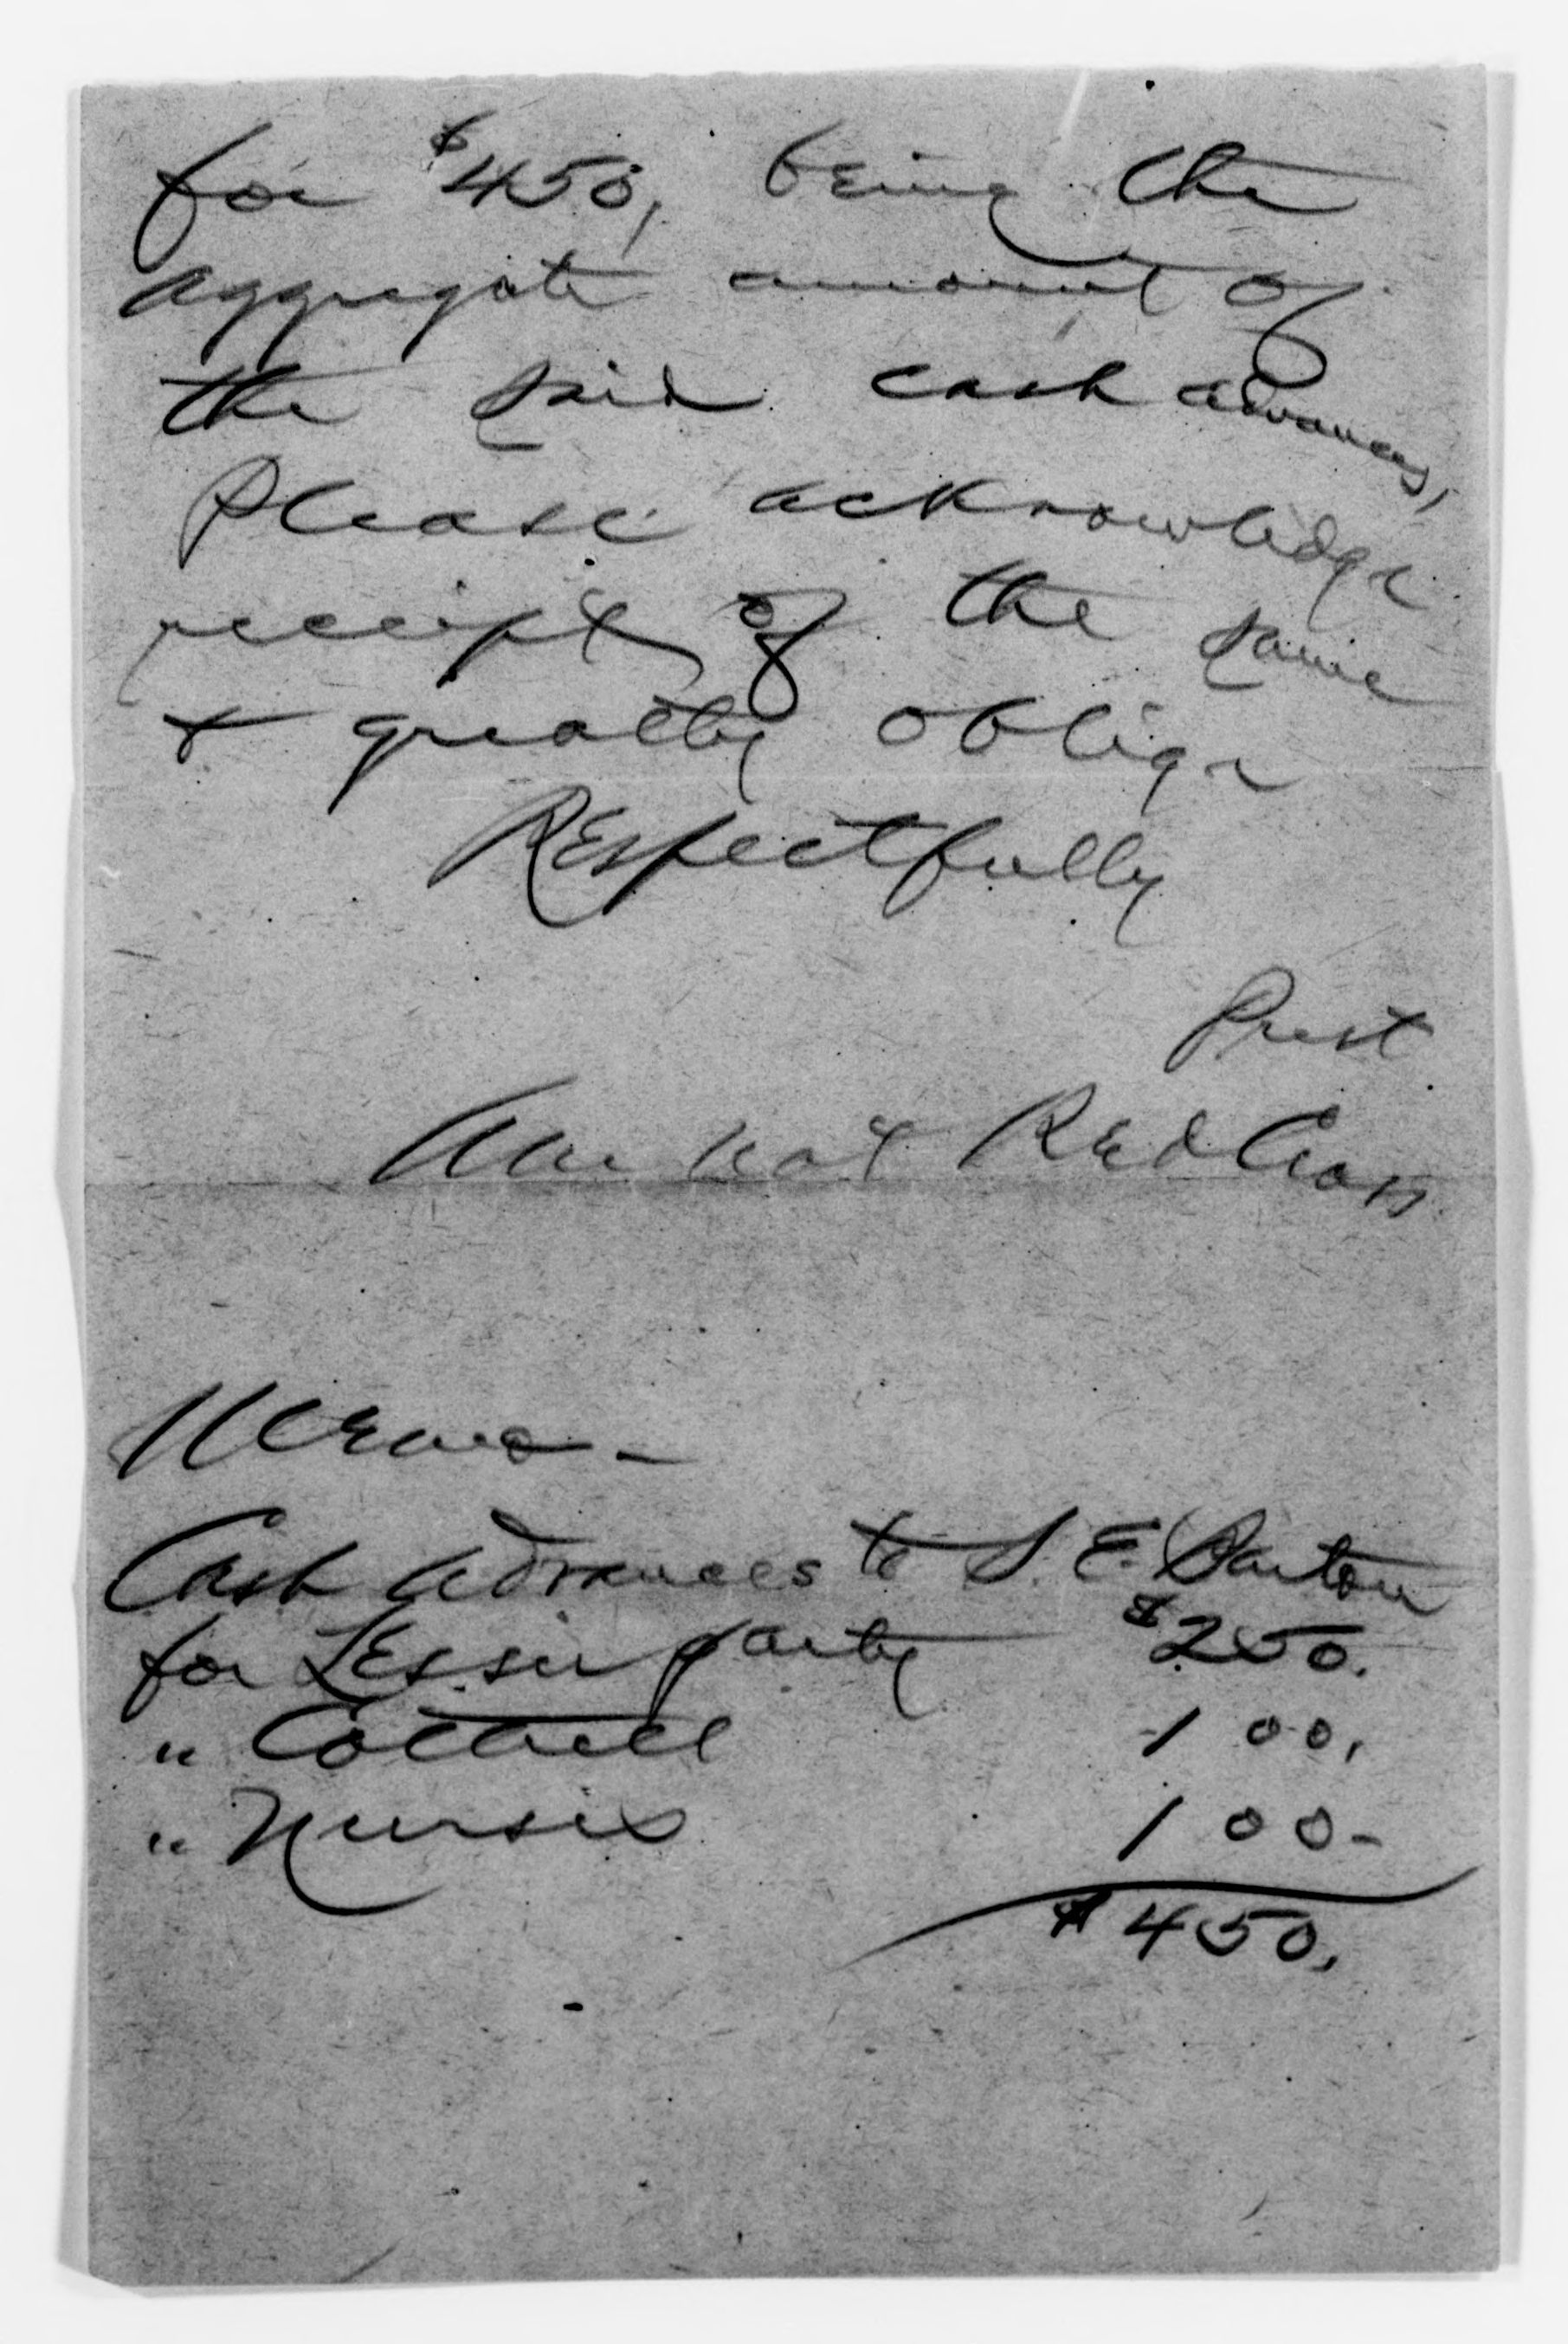 for $450, being the
aggregate amount of
the said cash advances,
Please acknowledge
receipt of the same
& greatly oblige
Respectfully
Prest
Am Nat Red Cross
Memo -
Cash Advances to S. E. Barton
for Lesser party $250.
" Cottrell 100.
" Nurses 100-
$450.